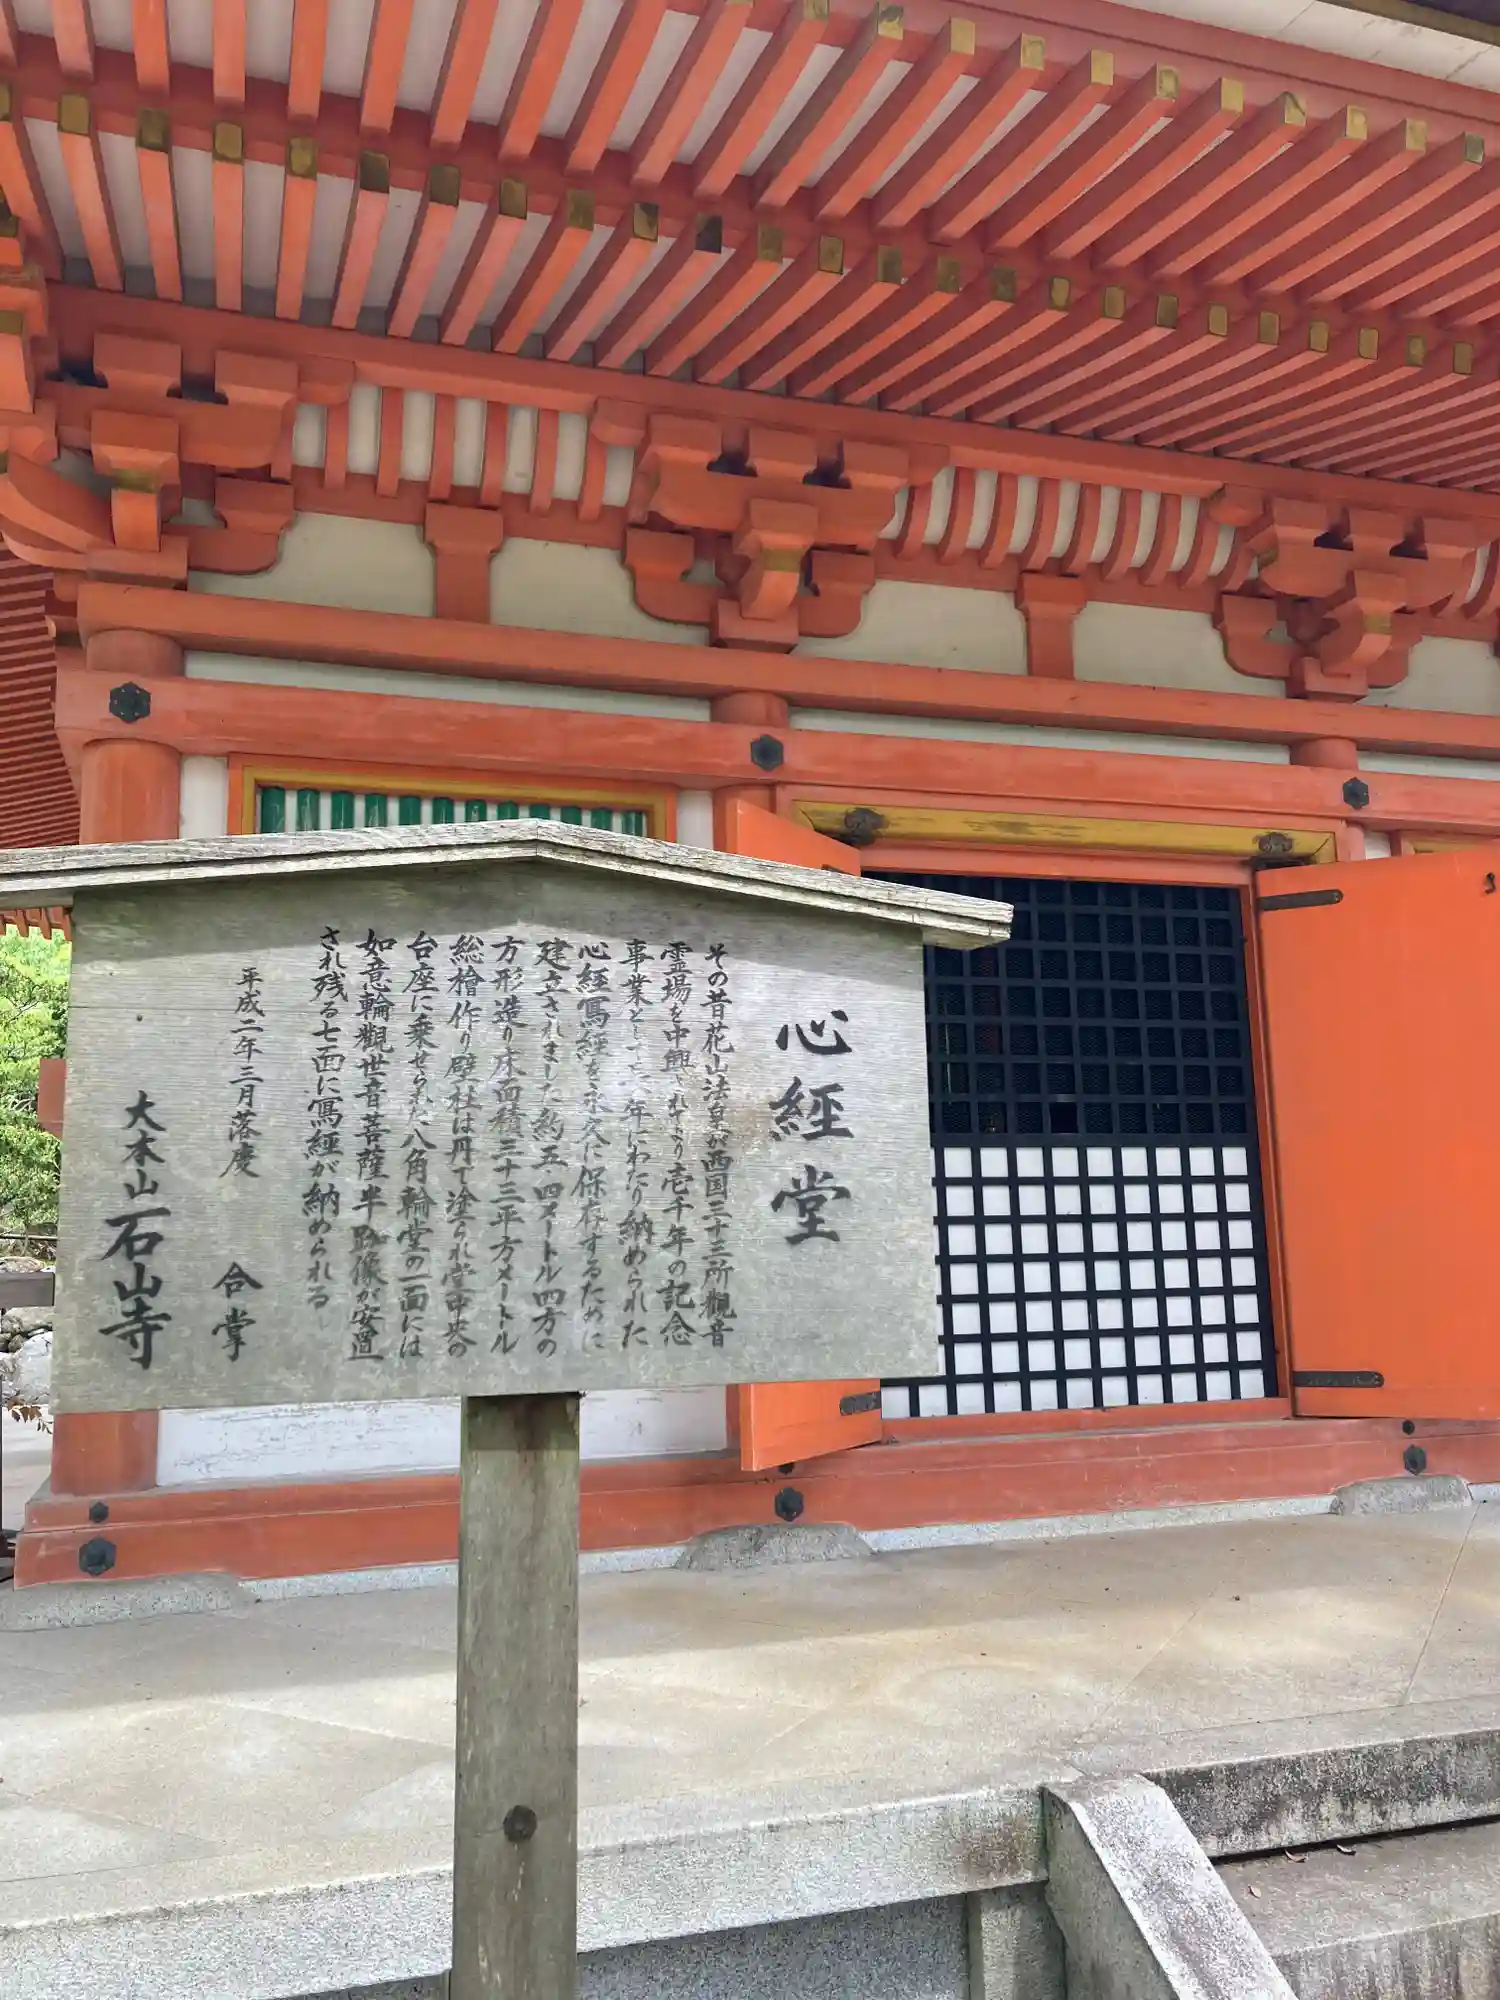 心経堂
その昔花山法皇が西国三十三所觀音
霊場を中興されてより壱千年の記念
事業として八年にわたり納められた
心経寫経を永久に保存するために
建立されました約五・四メートル四方の
方形造り床面積三十三平方メートル
総檜作り壁柱は丹で塗られ堂中央の
台座に乗せられた八角輪堂の一面には
如意輪觀世音菩薩半跏像が安置
され残る七面に寫経が納められる
平成二年三月落慶
合掌
大本山石山寺